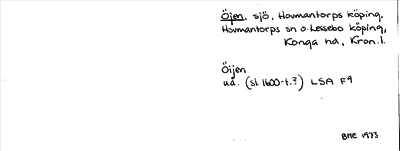 Öjen, sjö, Hovmantorps köping,
Hovmantorps sn o. Lessebo köping,
Konga hd, Kron. l.
Öijen
ud. (sl. 1600-t.?) LSA F9
BME 1973